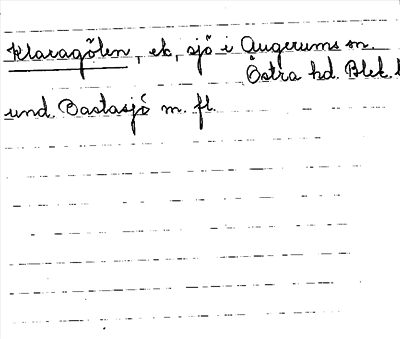 Klaragölen, ek, sjö i Augerums sn.
Östra hd. Blek. l
und. Bastasjö m. fl.